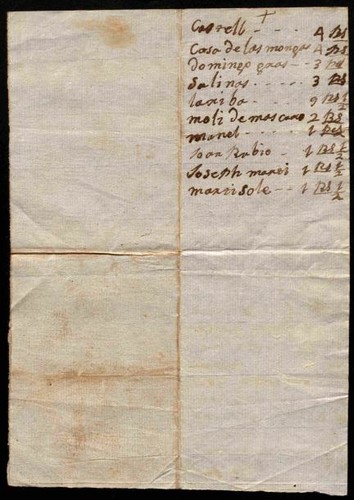 +
Castell - - - 4 Rs
Casa de las mongas 4 Rs
domingo gras -- 3 Rs
Salinas - - - 3 Rs
la riba - - - 9 Rs ½
moli de mascaro 2 Rs
manel - - - - 1 Rs ½
Joan Rubio - - 1 Rs ½
Joseph mari - 1 Rs ½
mari sole - - 1 Rs ½